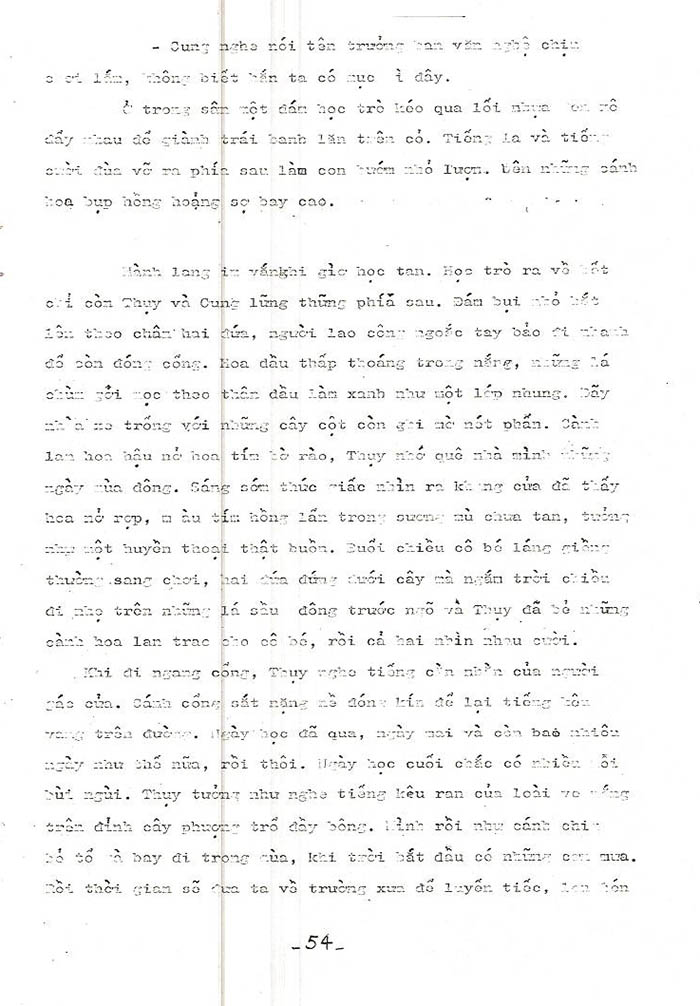 - Cung nghe nói tên trưởng ban văn nghệ chịu
chơi lắm, không biết hắn ta có mục đây.
Ở trong sân một đám học trò kéo qua lối nhựa
đẩy nhau để giành trái banh lăn trên cỏ. Tiếng la và tiếng
cười đùa vỡ ra phía sau làm con bướm nhỏ lượn trên những cánh
hoa bụp hồng hoảng sợ bay cao.
Hành lang im vắngkhi giờ học tan. Học trò ra về hết
chỉ còn Thụy và Cung lững thững phía sau. Đám bụi nhỏ bắt
lên theo chân hai đứa, người lao công ngoắc tay bảo đi nhanh
để còn đóng cổng. Hoa dầu thấp thoáng trong nắng, những lá
chùm gởi mọc theo thân dầu làm xanh như một lớp nhung. Dãy
nhà xe trống với những cây cột còn ghi mờ nét phấn. Cành
lan hoa hậu nở hoa tím bờ rào, Thụy nhớ quê nhà mình những
ngày mùa đông. Sáng sớm thức giấc nhìn ra khung cửa đã thấy
hoa nở rợp, m àu tím hồng lẩn trong sương mù chưa tan, tưởng
như một huyền thoại thật buồn. Buổi chiều cô bé láng giềng
thường sang chơi, hai đứa đứng dưới cây mà ngắm trời chiều
đi nhẹ trên những lá sầu đông trước ngõ và Thụy đã bẻ những
cành hoa lan trao cho cô bé, rồi cả hai nhìn nhau cười.
Khi đi ngang cổng, Thụy nghe tiếng cằn nhằn của người
gác cửa. Cánh cổng sắt nặng nề đóng kín để lại tiếng
vang trên đường. Ngày học đã qua, ngày mai và còn bao nhiêu
ngày như thế nữa, rồi thôi. Ngày học cuối chắc có nhiều nỗi
bùi ngùi. Thụy tưởng như nghe tiếng kêu ran của loài ve
trên đỉnh cây phượng trổ đầy bông. Mình rồi như cánh chim
bỏ tổ và bay đi trong mùa, khi trời bắt đầu có những cơn mưa.
Rồi thời gian sẽ đưa ta về trường xưa để luyến tiếc, len lén
-54-